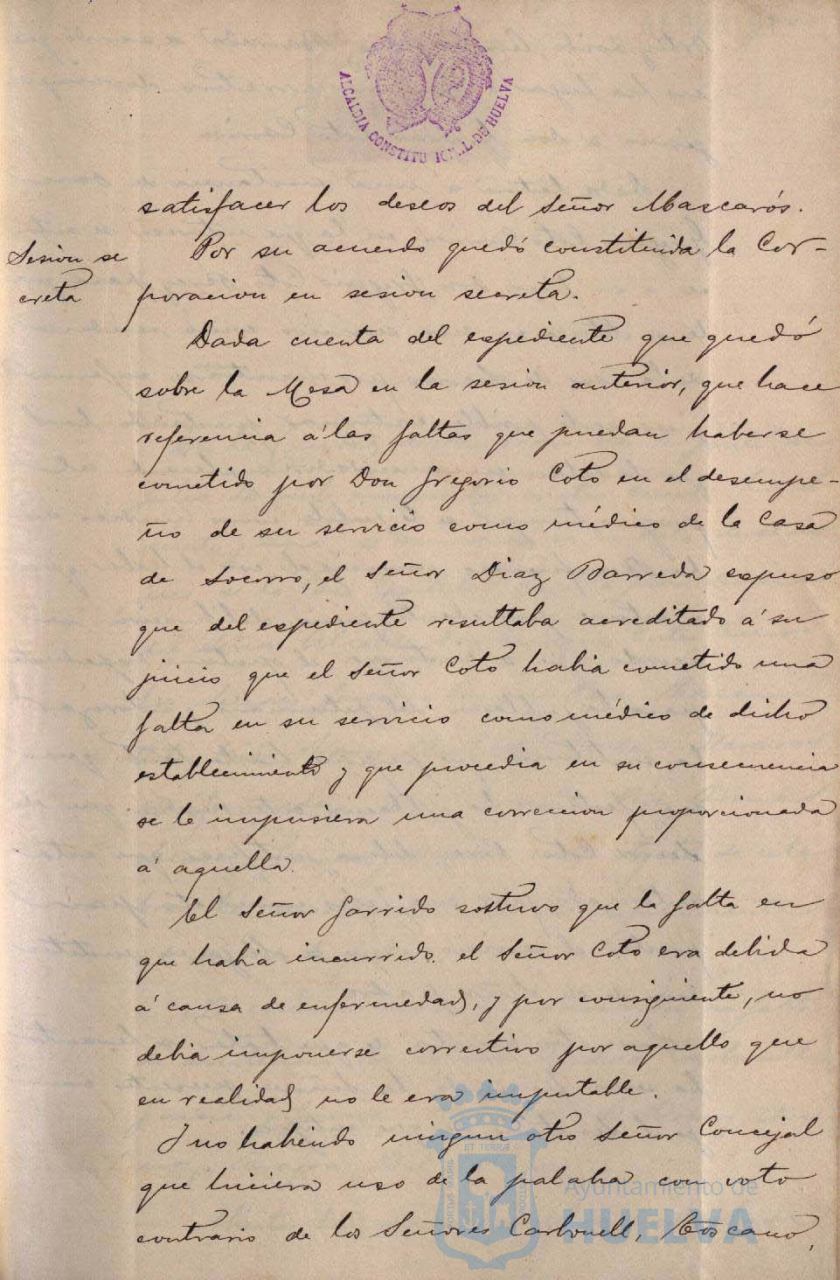 ALCALDIA CONSTITUCIONAL DE HUELVA
satisfacer los deseos del Señor Mascarós.
Sesion se
creta
Por su acuerdo quedó constituida la Cor-
poracion en sesion secreta.
Dada cuenta del espediente que quedó
sobre la Mesa en la sesion anterior, que hace
referencia á las faltas que puedan haberse
cometido por Don Gregorio Coto en el desempe-
ño de su servicio como médico de la Casa
de Socorro, el Señor Diaz Barreda espuso
que del espediente resultaba acreditado á su
juicio que el Señor Coto habia cometido una
falta en su servicio como médico de dicho
establecimiento y que procedia en su consecuencia
se le impusiera una correccion proporcionada
á aquella.
El Señor Garrido sostuvo que la falta en
que habia incurrido el Señor Coto era debida
á causa de enfermedad, y por consiguiente, no
debia imponerse correctivo por aquello que
en realidad no le era imputable.
Y no habiendo ningun otro Señor Concejal
que hiciera uso de la palaba con voto
contrario de los Señores Carbonell, Toscano,
Ayuntamiento de
HUELVA